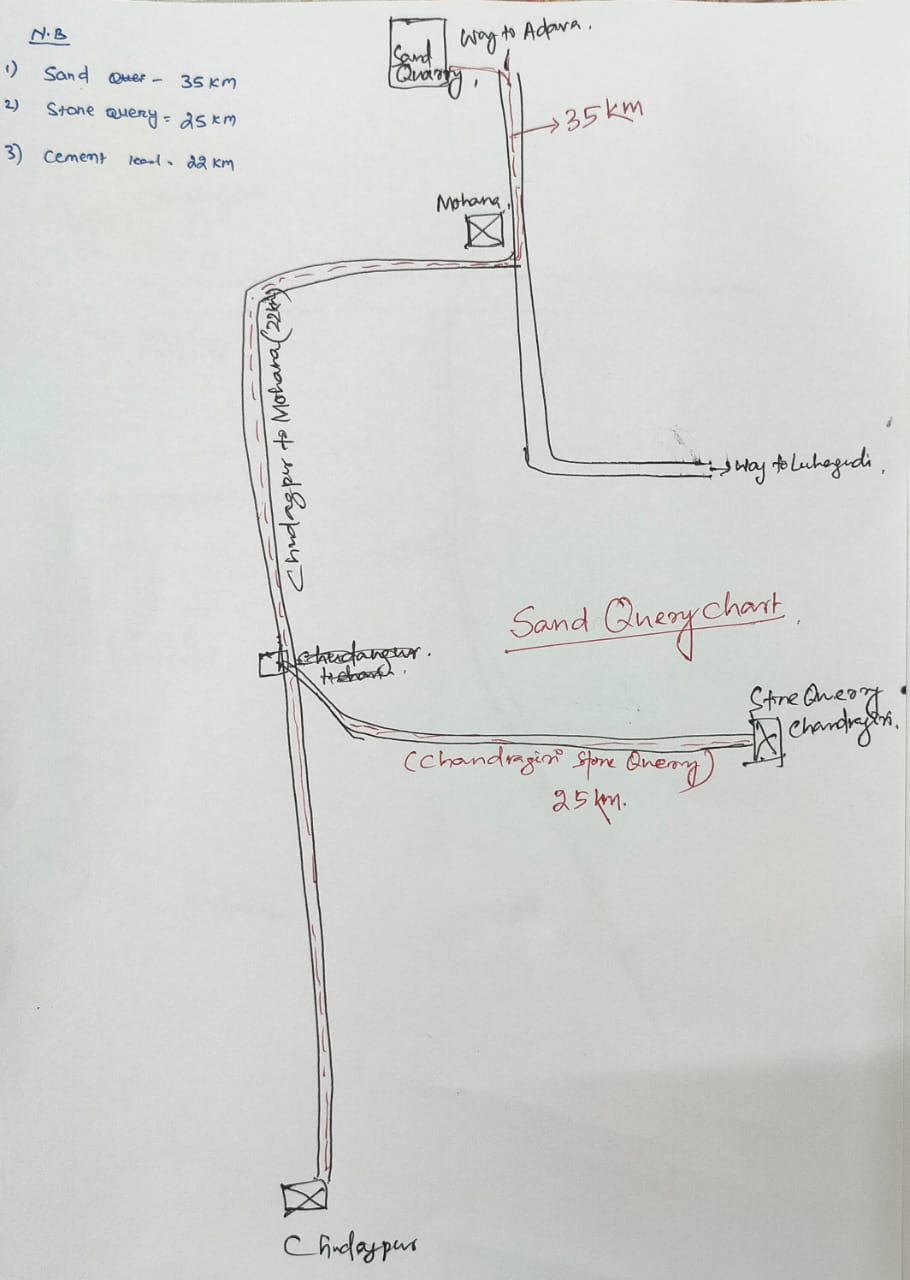 N.B
1) Sand Quer - 35 KM
2) Stone Query = 25 KM
3) Cement lead - 22 KM
Sand
Quarry,
Way to Adava.
→ 35 KM
Mohana
Chudagpur to Mohana (22km)
→ Way to Luhagudi,
Sand Query chart
Stone Query
Chandragiri.
(Chandragiri Stone Query)
25 km.